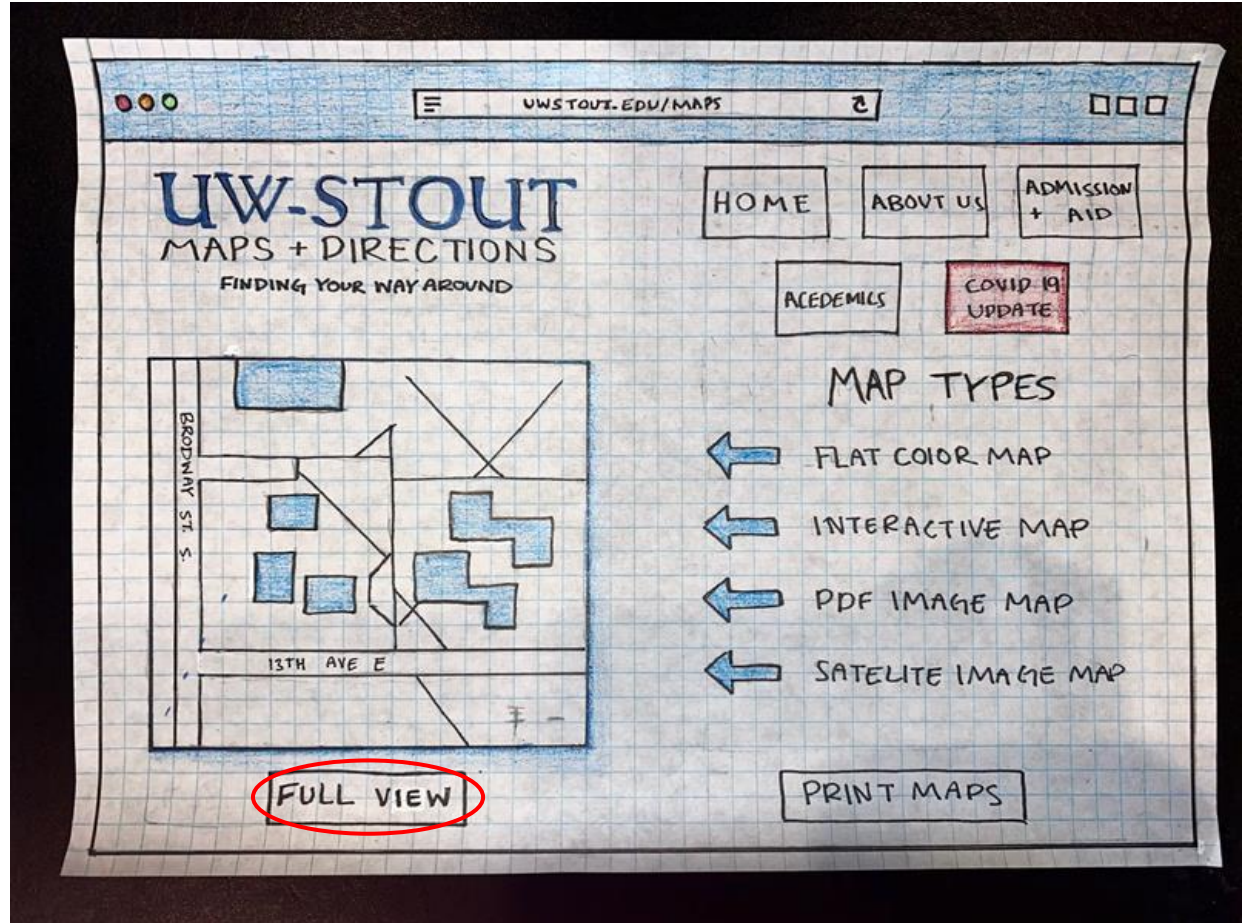 UWSTOUT.EDU/MAPS
UW-STOUT
MAPS + DIRECTIONS
FINDING YOUR WAY AROUND
HOME
ABOUT US
ADMISSION
+ AID
ACEDEMICS
COVID 19
UPDATE
BRODWAY ST. S.
13TH AVE E
MAP TYPES
FLAT COLOR MAP
INTERACTIVE MAP
PDF IMAGE MAP
SATELITE IMAGE MAP
FULL VIEW
PRINT MAPS